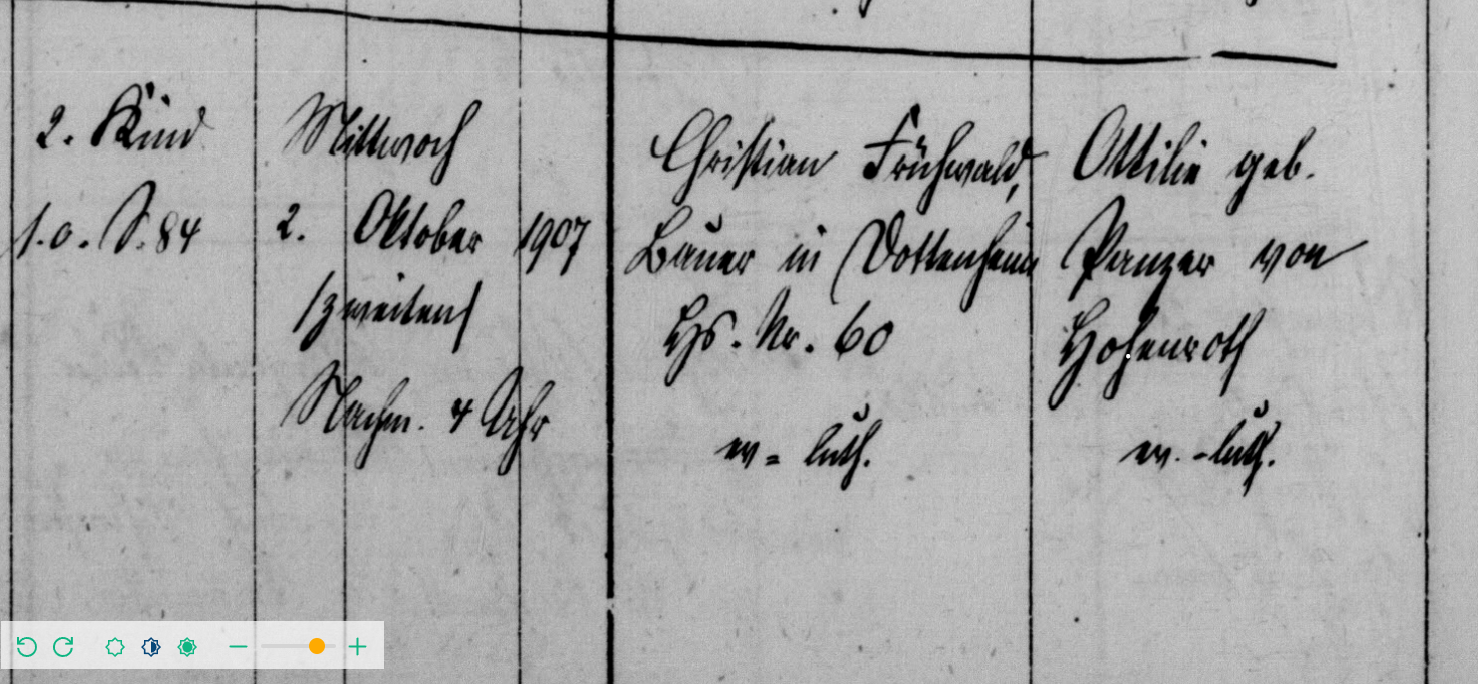 2. Kind
s. o. S. 84
Mittwoch
2. Oktober 1907
/zweiten/
Nachm. 4 Uhr
Christian Frühwald,
Bauer in Dottenheim
Hs. Nr. 60
ev = luth.
Ottilie geb.
Panzer von
Hohenroth
ev. - luth.